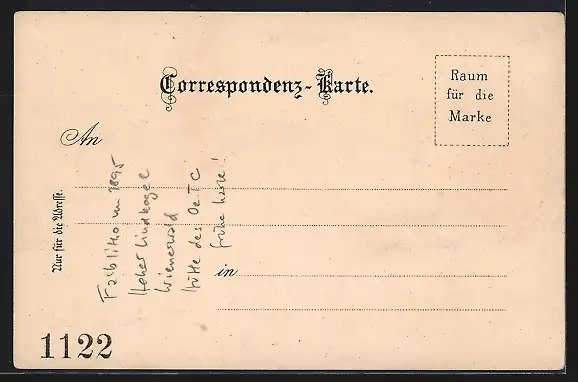 Correspondenz-Karte.
Raum
für die
Marke
An
in
Nur für die Adresse.
Farblitho um 1895
Hoher Lindkogel
Wienerwald
Hütte des Oe T C
frühe Karte!
1122